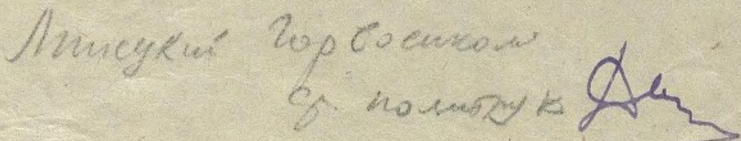 Липецкий Горвоенком
ср. политрук